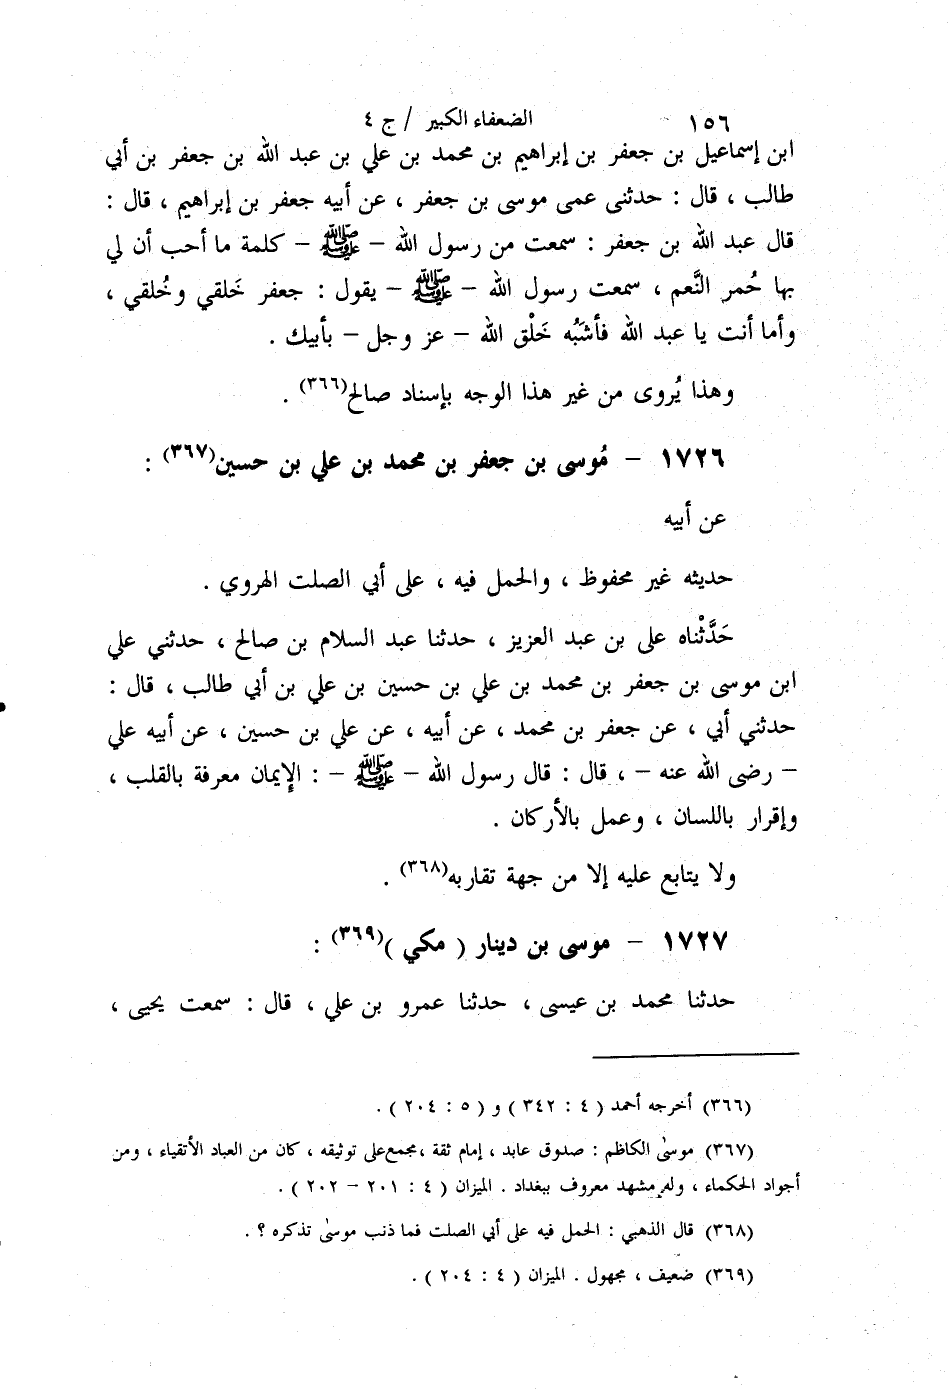 ١٥٦ الضعفاء الكبير / ج ٤
ابن إسماعيل بن جعفر بن إبراهيم بن محمد بن علي بن عبد الله بن جعفر بن أبي
طالب ، قال : حدثنى عمى موسى بن جعفر ، عن أبيه جعفر بن إبراهيم ، قال :
قال عبد الله بن جعفر : سمعت من رسول الله – ﷺ – كلمة ما أحب أن لي
بها حُمر النَّعم ، سمعت رسول الله – ﷺ – يقول : جعفر خَلقي وخُلقي ،
وأما أنت يا عبد الله فأشبَُه خَلْق الله – عز وجل – بأبيك .
وهذا يُروى من غير هذا الوجه بإسناد صالح(٣٦٦) .
١٧٢٦ – مُوسى بن جعفر بن محمد بن علي بن حسين(٣٦٧) :
عن أبيه
حديثه غير محفوظ ، والحمل فيه ، على أبي الصلت الهروي .
حَدَّثْناه على بن عبد العزيز ، حدثنا عبد السلام بن صالح ، حدثني علي
ابن موسى بن جعفر بن محمد بن علي بن حسين بن علي بن أبي طالب ، قال :
حدثني أبي ، عن جعفر بن محمد ، عن أبيه ، عن علي بن حسين ، عن أبيه علي
– رضى الله عنه – ، قال : قال رسول الله – ﷺ – : الإيمان معرفة بالقلب ،
وإقرار باللسان ، وعمل بالأركان .
ولا يتابع عليه إلا من جهة تقاربه(٣٦٨) .
١٧٢٧ – موسى بن دينار ( مكي )(٣٦٩) :
حدثنا محمد بن عيسى ، حدثنا عمرو بن علي ، قال : سمعت يحيى ،
(٣٦٦) أخرجه أحمد ( ٤ : ٣٤٢ ) و ( ٥ : ٢٠٤ ) .
(٣٦٧) موسىٰ الكاظم : صدوق عابد ، إمام ثقة ،مجمع على توثيقه ، كان من العباد الأتقياء ، ومن
أجواد الحكماء ، وله مشهد معروف ببغداد . الميزان ( ٤ : ٢٠١ – ٢٠٢ ) .
(٣٦٨) قال الذهبي : الحمل فيه على أبي الصلت فما ذنب موسىٰ تذكره ؟ .
(٣٦٩) ضعيف ، مجهول . الميزان ( ٤ : ٢٠٤ ) .